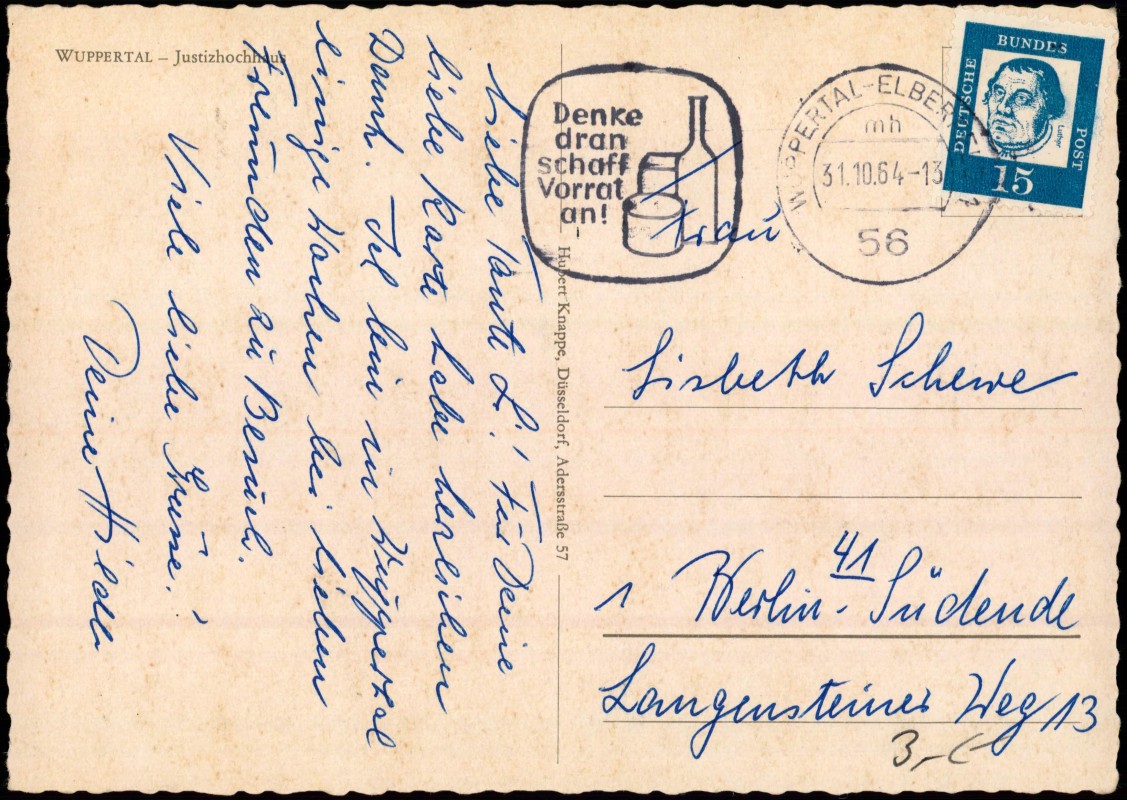 WUPPERTAL – Justizhochhaus
Liebe Tante L.! Für Deine
liebe Karte habe herzlichen
Dank. Ich bin in Wuppertal
einige Wochen bei lieben
Freunden zu Besuch.
Viele liebe Grüsse!
Deine Hilda
Hubert Knappe, Düsseldorf, Adersstraße 57
Denke
dran
schaff
Vorrat
an!
WUPPERTAL-ELBERF
mh
31.10.64-13
56
DEUTSCHE
BUNDES
POST
Luther
15
Frau
Lisbeth Schewe
1 Berlin 41 - Südende
Langensteiner Weg 13
3,-